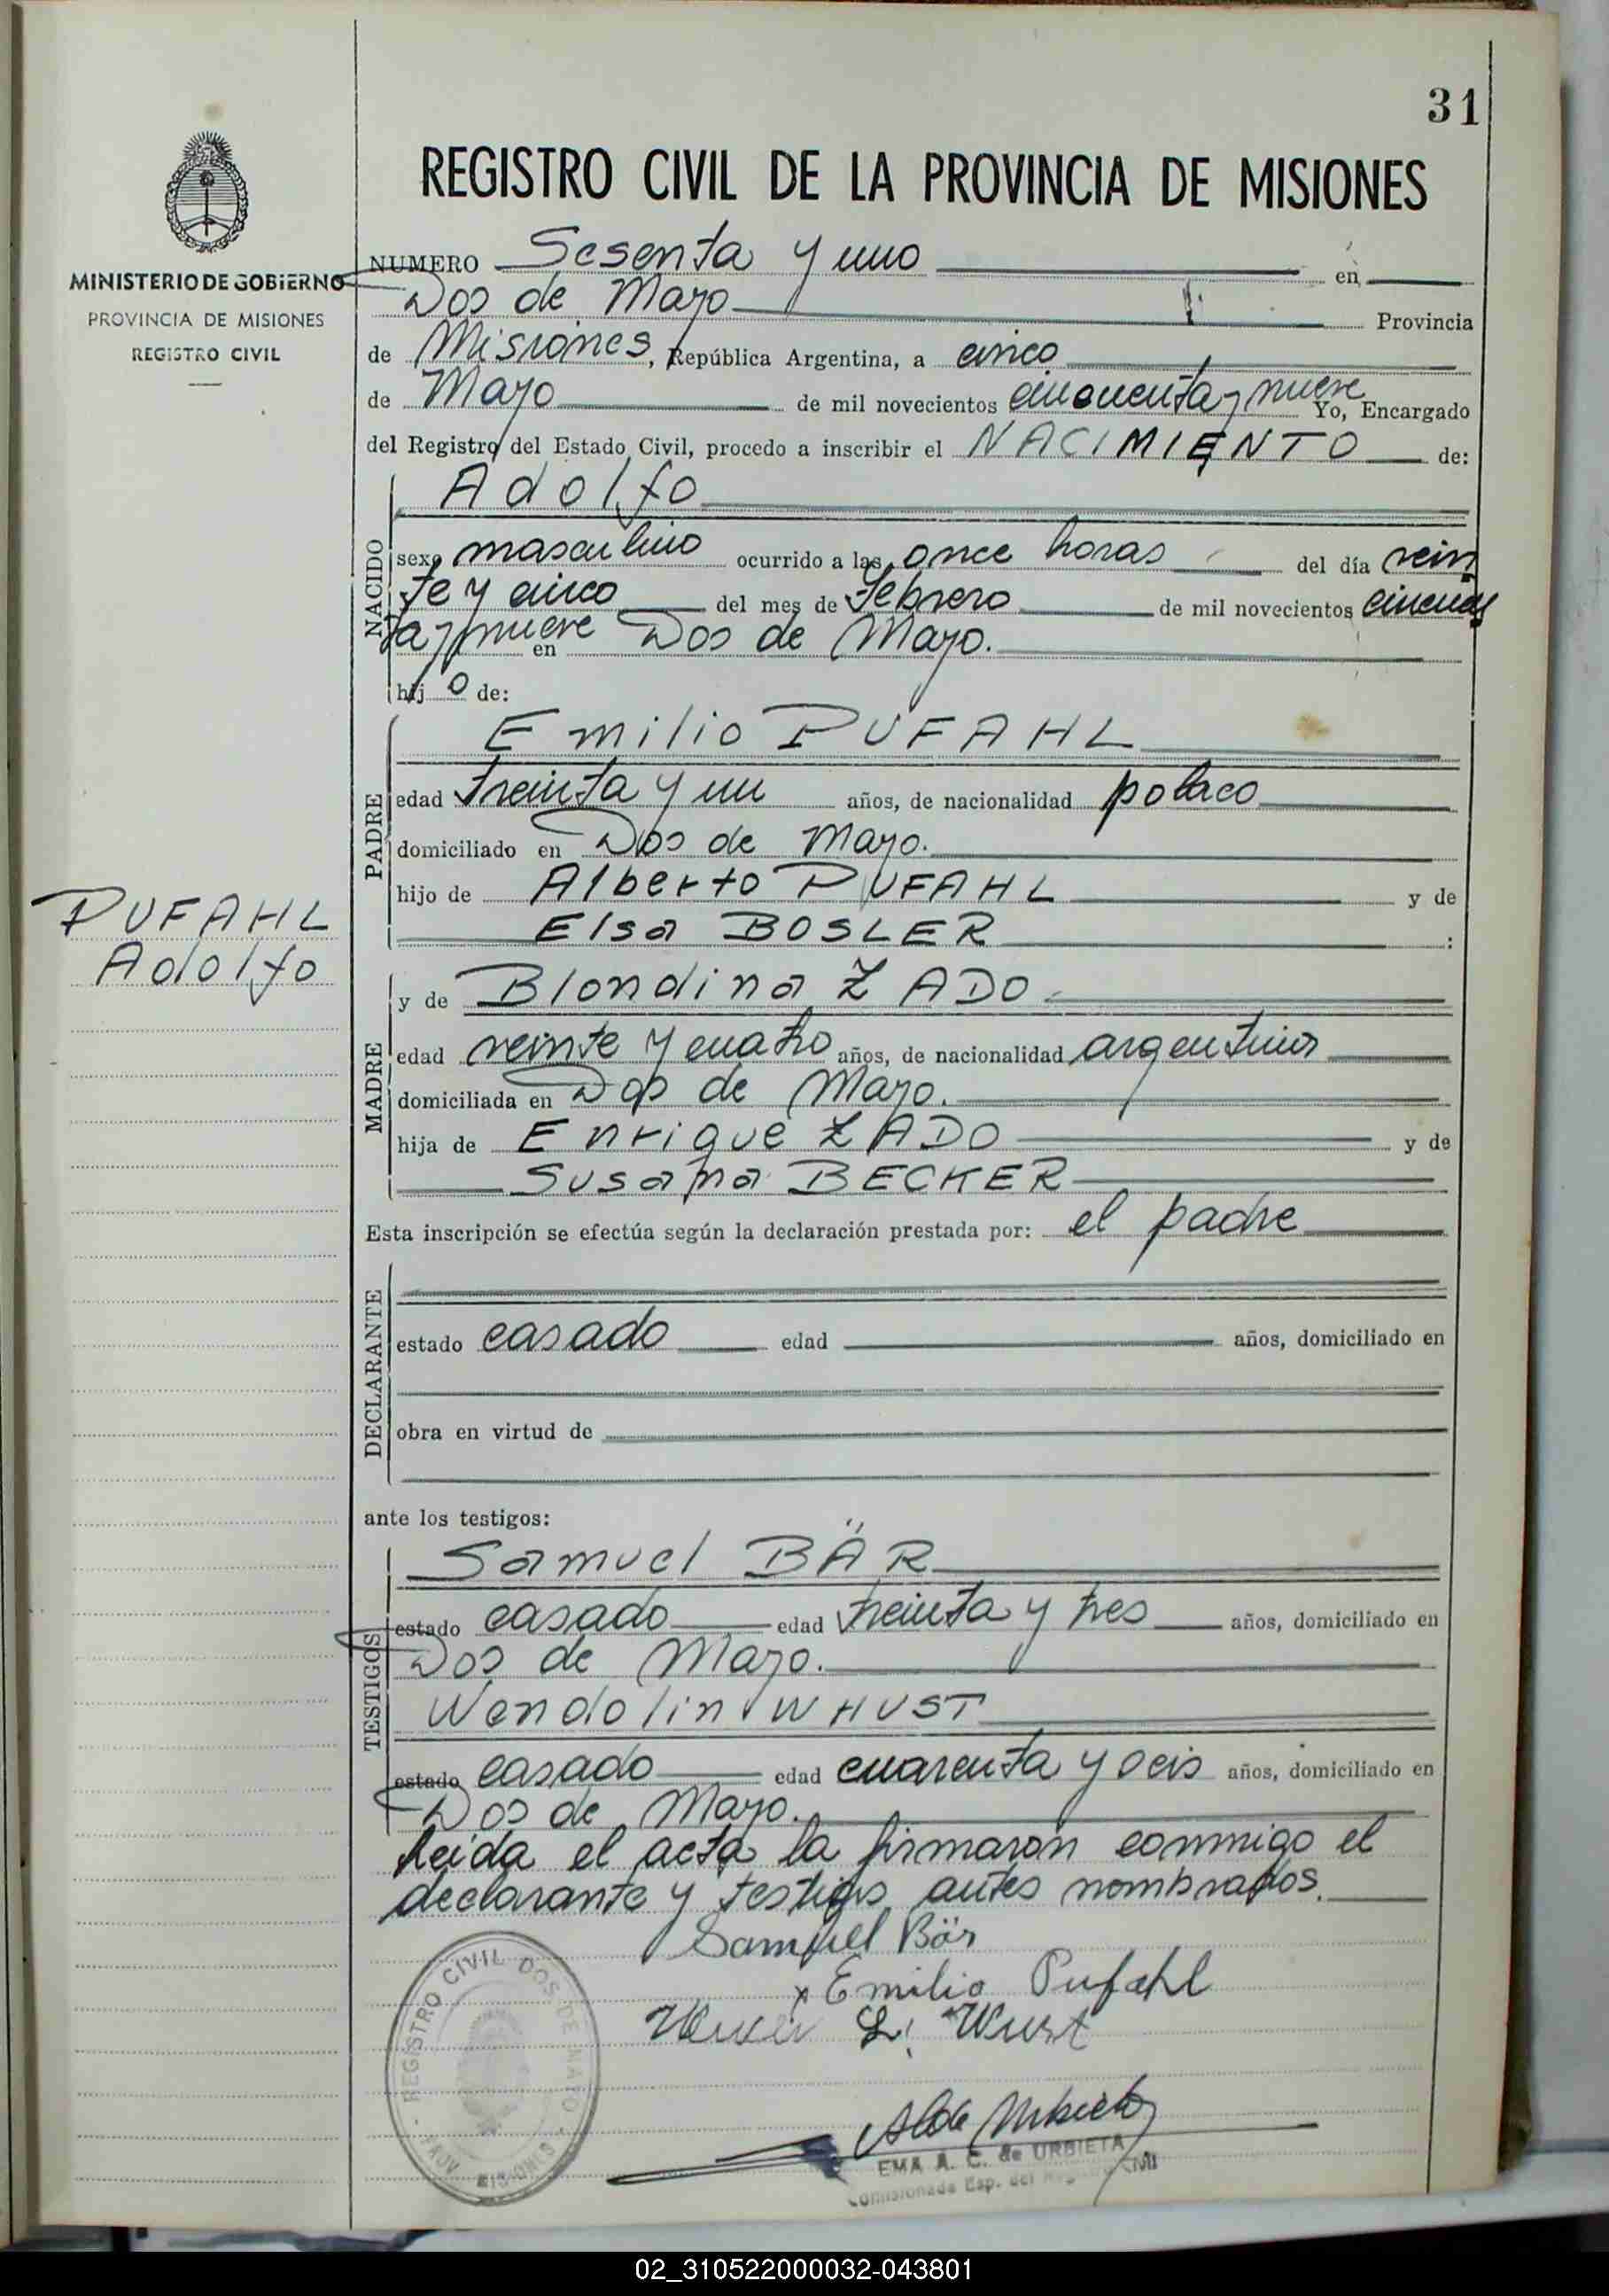 31
REGISTRO CIVIL DE LA PROVINCIA DE MISIONES
MINISTERIO DE GOBIERNO
PROVINCIA DE MISIONES
REGISTRO CIVIL
NUMERO Sesenta y uno en
Dos de Mayo Provincia
de Misiones, República Argentina, a cinco
de Mayo de mil novecientos cincuenta y nueve Yo, Encargado
del Registro del Estado Civil, procedo a inscribir el NACIMIENTO de:
NACIDO
Adolfo
sexo masculino ocurrido a las once horas del día vein
te y cinco del mes de Febrero de mil novecientos cincuen
ta y nueve en Dos de Mayo.
hij o de:
PADRE
Emilio PUFAHL
edad treinta y un años, de nacionalidad polaco
domiciliado en Dos de Mayo.
hijo de Alberto PUFAHL y de
Elsa BOSLER :
PUFAHL
Adolfo
MADRE
y de Blondina ZADO
edad veinte y cuatro años, de nacionalidad argentina
domiciliada en Dos de Mayo.
hija de Enrique ZADO y de
Susana BECKER
Esta inscripción se efectúa según la declaración prestada por: el padre
DECLARANTE
estado casado edad años, domiciliado en
obra en virtud de
ante los testigos:
TESTIGOS
Samuel BÄR
estado casado edad treinta y tres años, domiciliado en
Dos de Mayo.
Wendolin WHUST
estado casado edad cuarenta y años, domiciliado en
Dos de Mayo.
Leida el acta la firmaron conmigo el
declarante y testigos antes nombrados.
Samuel Bär
x Emilio Pufahl
Wust
REGISTRO CIVIL DOS DE MAYO
EMA A. C. de URBIETA
Comisionada Esp. del Registro Civil
02_310522000032-043801